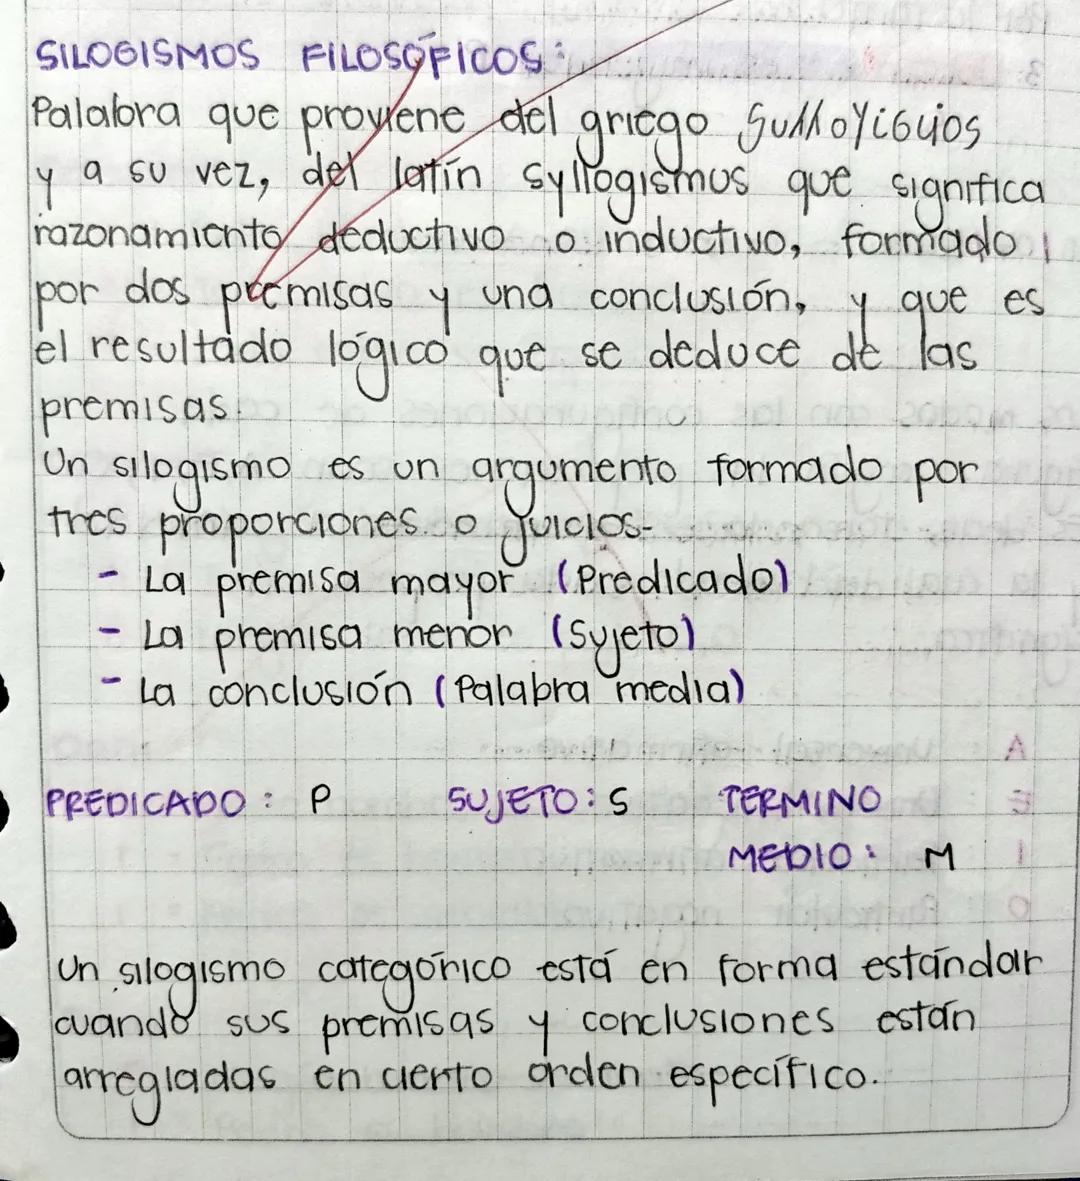 SILOGISMOS FILOSÓFICOS:
Palabra que proviene del griego
y a su vez, del latín syllogismus que significa
razonamiento deductivo o inductivo, formado
por dos premisas y una conclusión, y que es
el resultado lógico que se deduce de las
premisas.
Un silogismo es un argumento formado por
tres proporciones o juicios-
- La premisa mayor (Predicado)
- La premisa menor (Sujeto)
- La conclusión (Palabra media)
PREDICADO: P SUJETO: S TERMINO
MEDIO: M
Un silogismo categórico está en forma estándar
cuando sus premisas y conclusiones están
arregladas en cierto orden específico.